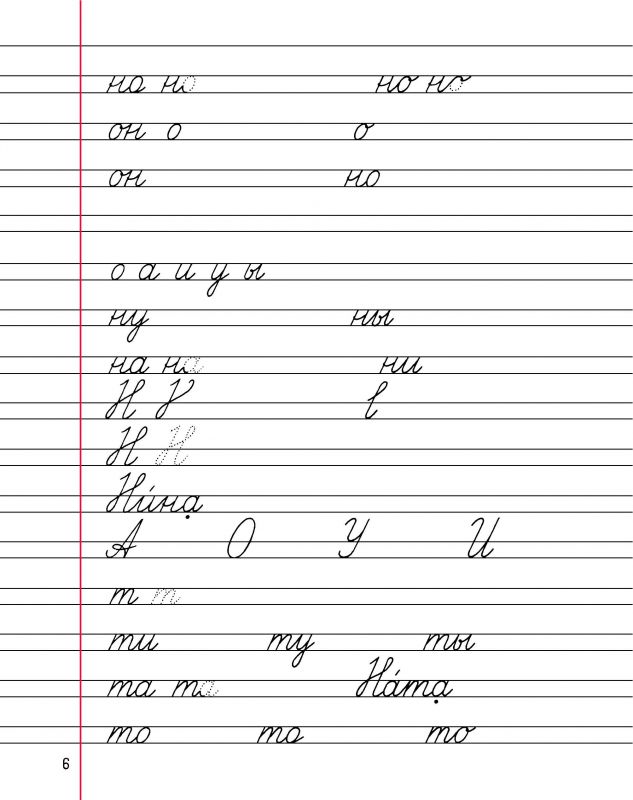 но но но но
он о о
он но
о а и у ы
ну ны
на на ни
Н
Н Н
Ни́на
А О У И
т т
ти ту ты
та та На́та
то то то
6